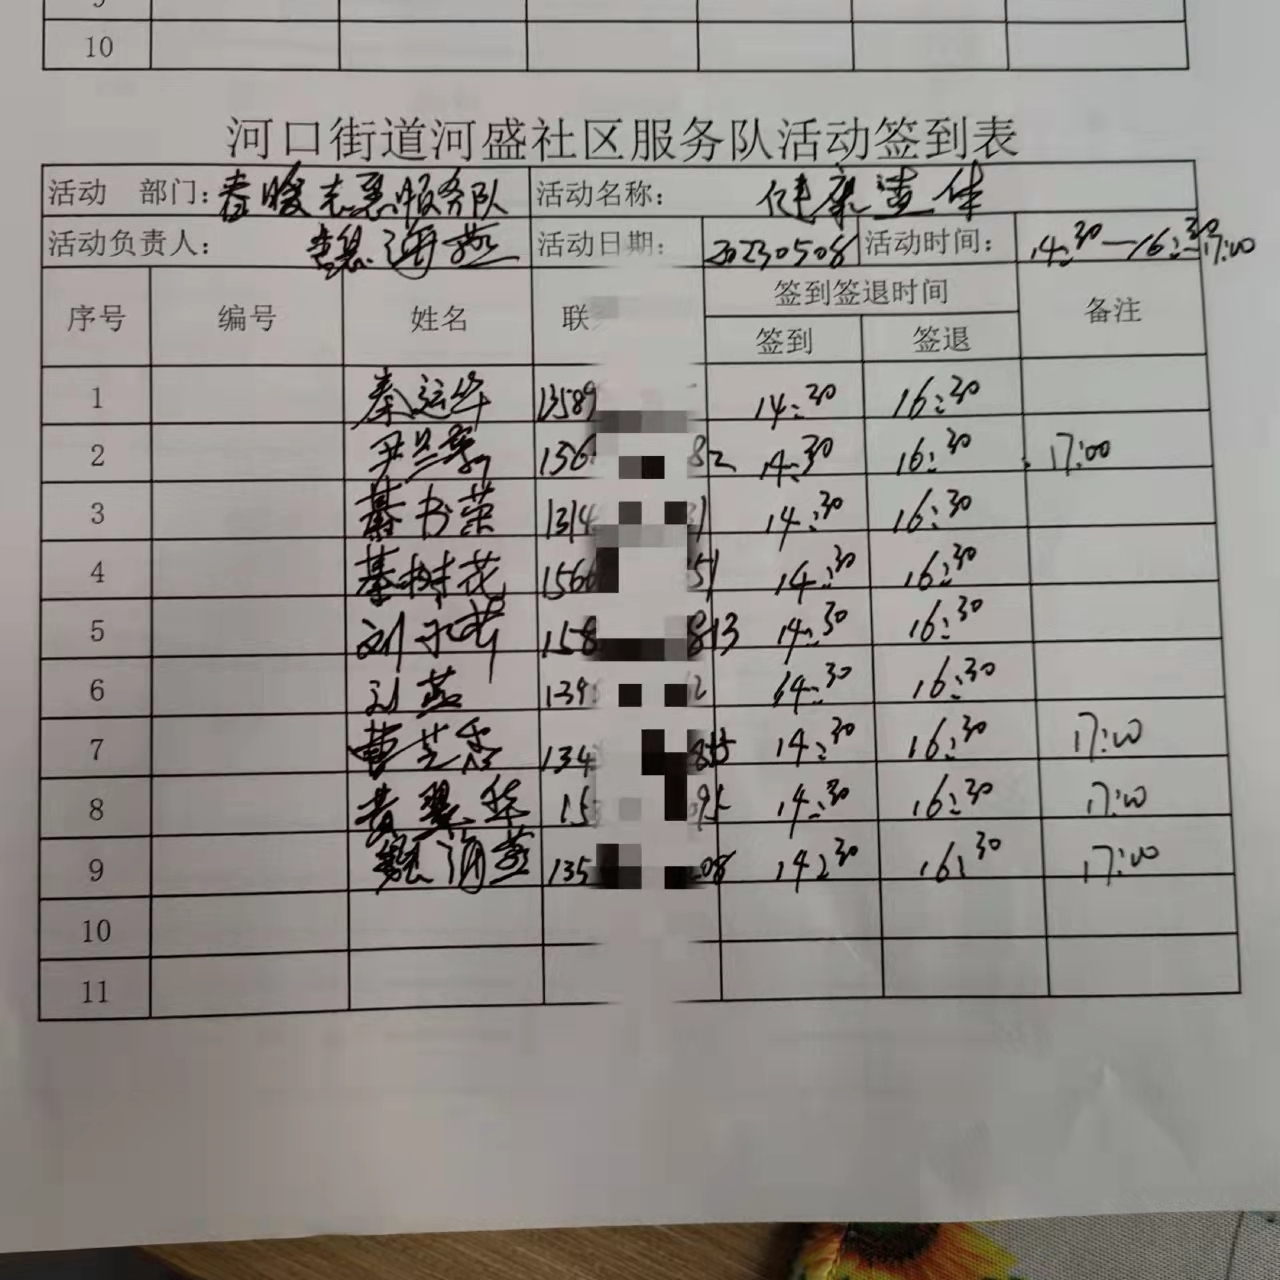 10
河口街道河盛社区服务队活动签到表
活动 部门：春暖志愿服务队 活动名称： 健康义体
活动负责人： 魏海燕 活动日期： 20230508 活动时间： 14:30—16:30 17:00
序号 编号 姓名 联 签到签退时间 备注
签到 签退
1 秦运华 13589 14:30 16:30
2 尹兰 156 82 14:30 16:30 17:00
3 綦书荣 1314 31 14:30 16:30
4 綦树花 1566 51 14:30 16:30
5 刘 158 813 14:30 16:30
6 刘燕 139 12 14:30 16:30
7 曹芝香 134 855 14:30 16:30 17:00
8 黄翠华 15 095 14:30 16:30 17:00
9 魏海燕 135 08 14:30 16:30 17:00
10
11